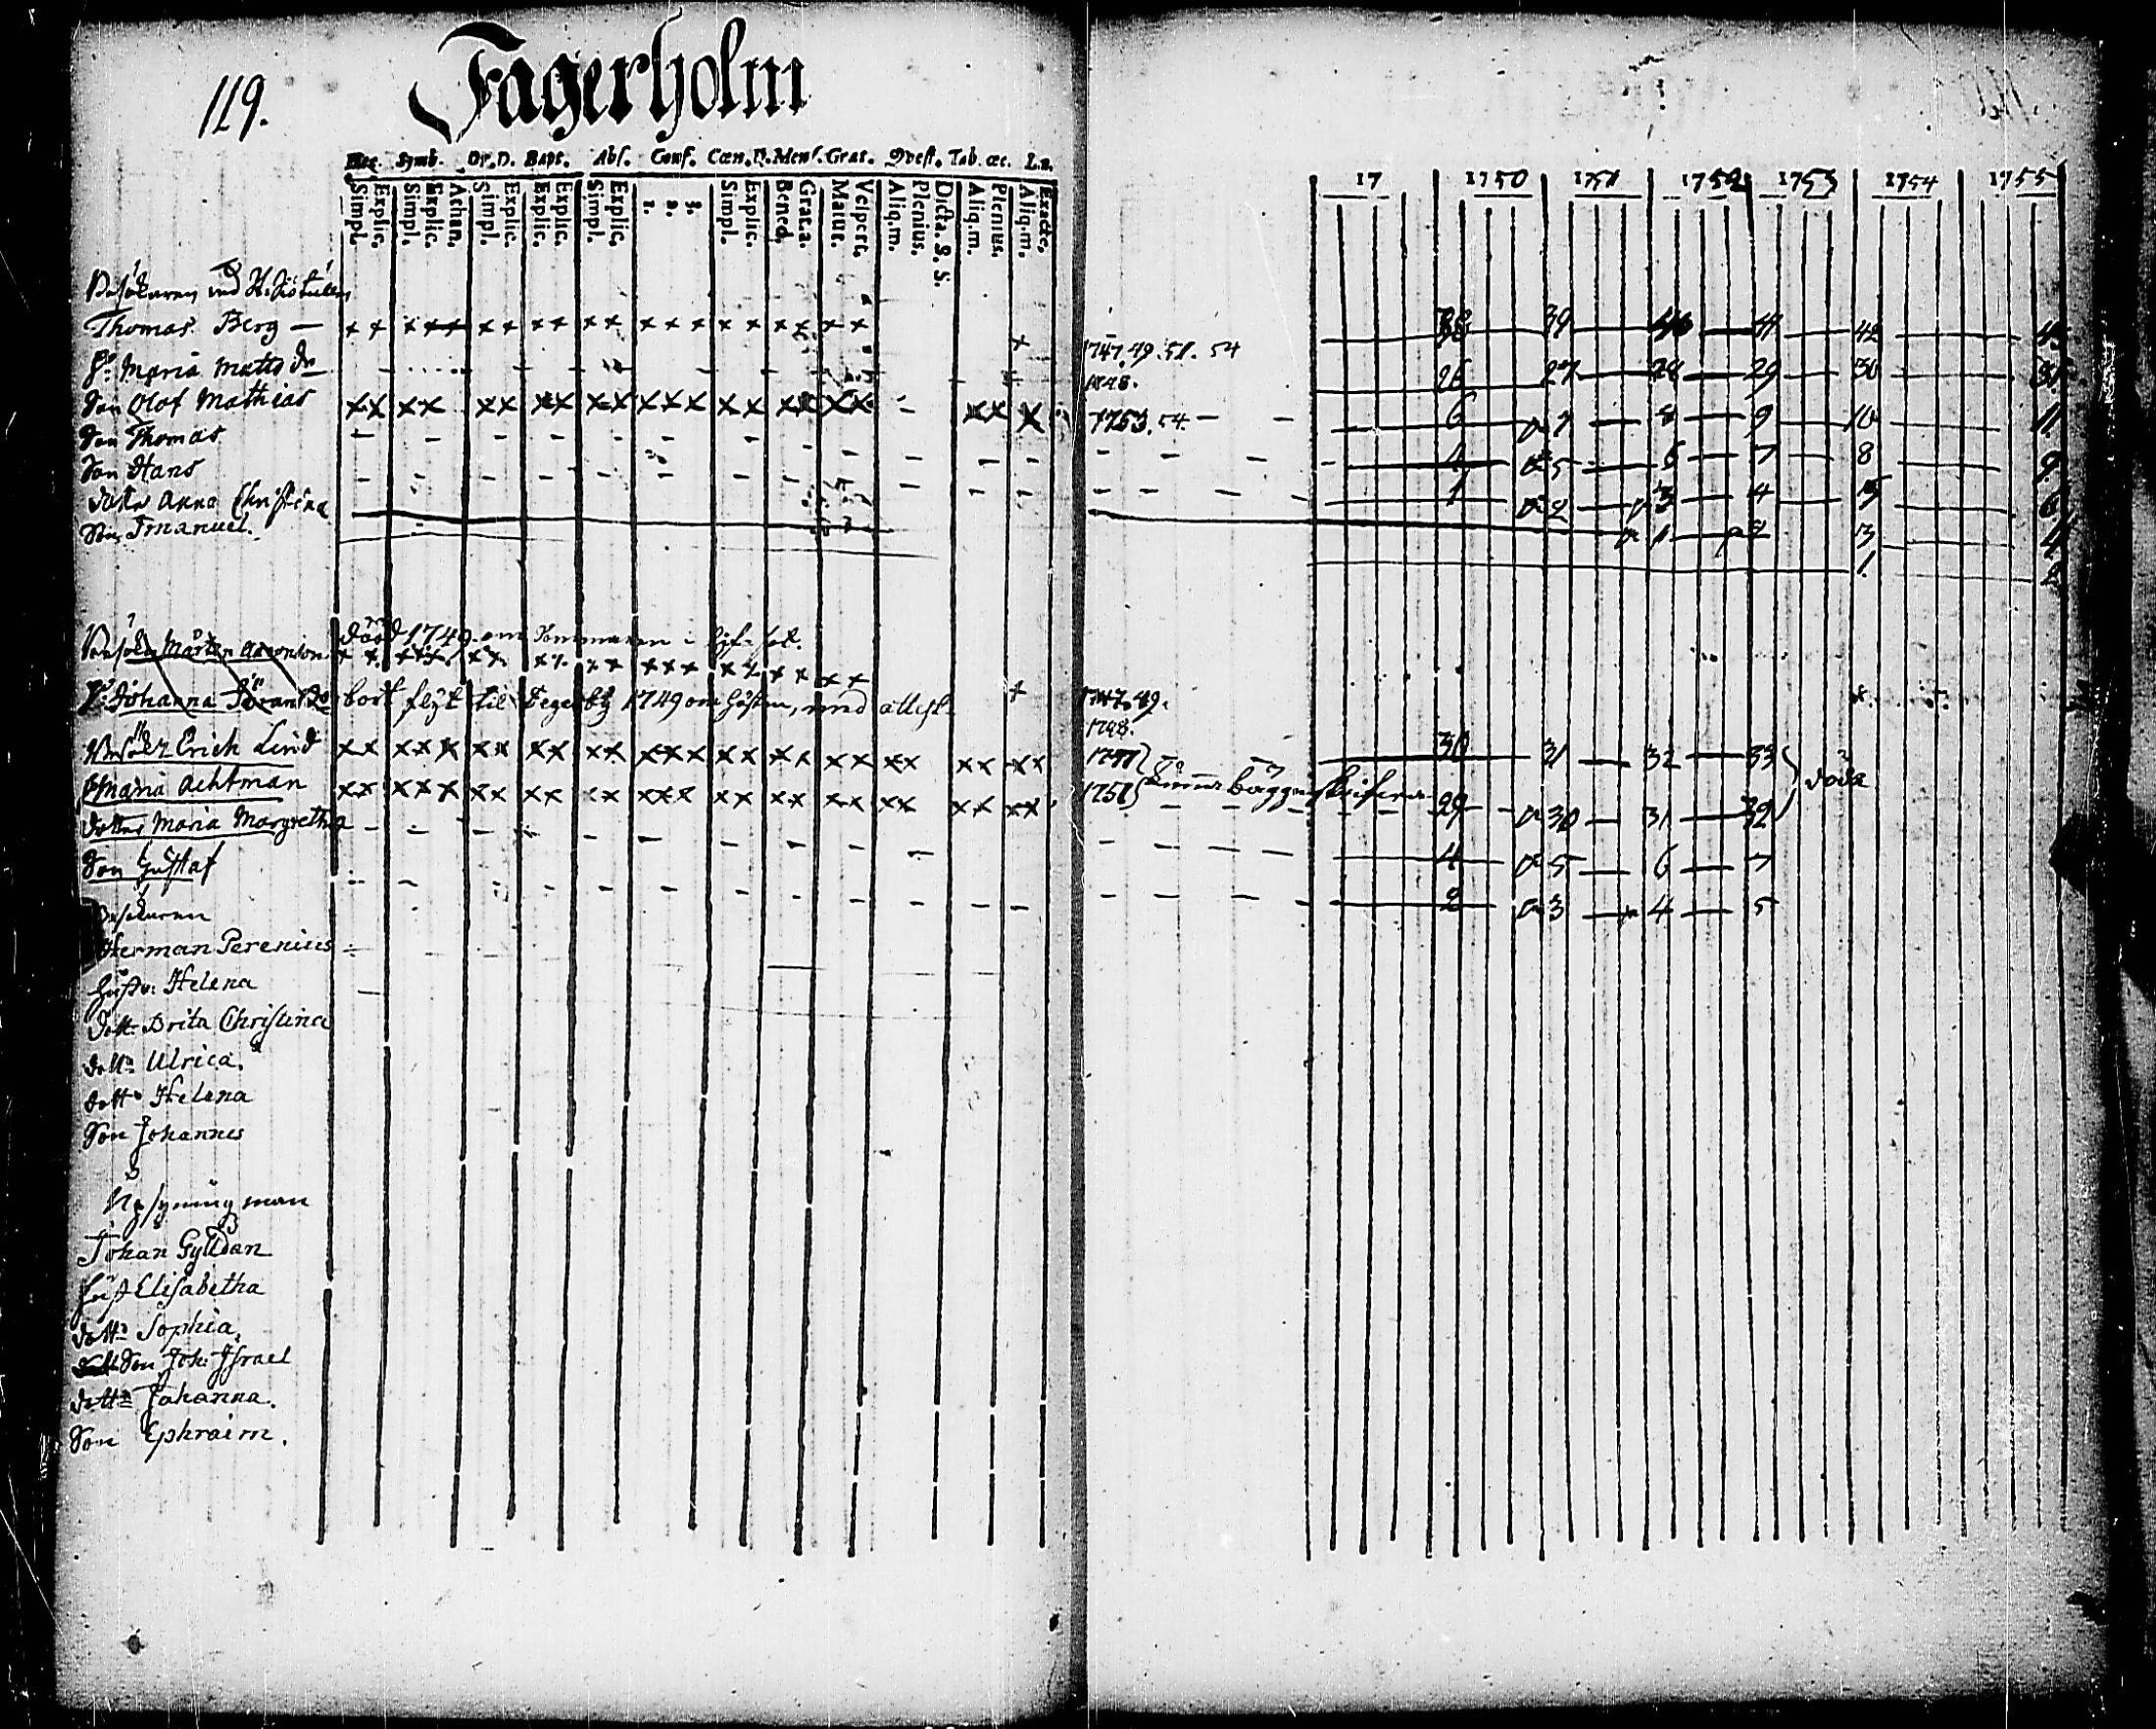 119.
Fagerholm
Symb. Or.D. Bapt. Abs. Conf. Cœn.D. Mens. Grat. Qvest. Tab. œc.
Simpl. Explic. Simpl. Explic. Athan. Simpl. Explic. Explic. Explic. Simpl. Explic. 1. 2. 3. Simpl. Explic. Bened. Grat.a. Matut. Vespert. Aliq.m. Plenius. Dicta. S. S. Aliq.m. Plenius. Aliq.m. Exacte.
17 1750 1751 1752 1753 1754 1755
Thomas Berg — 1747. 49. 51. 54 38 39 40 41 42
H: Maria Matts dr 1748. 26 27 28 29 30 31
Son Olof Mathias 1753. 54. 6 7 8 9 10 11
Son Thomas 4 5 6 7 8 9
Son Hans 1 2 3 4 5 6
dotter Anna Christina 1 2 3 4
Son Imanuel. 1 2
död 1749 om Sommaren
Mårten
H: Johanna bort flyt til Degerby 1749 om hösten, med attest 1747. 49.
1748.
Erich Lind 1747 30 31 32 33 döda
Maria Achtman 1751 29 30 31 32
dotter Maria Margretha 4 5 6 7
Son Gustaf 2 3 4 5
Besökaren
Herman Perenius
hustr: Helena
dott: Brita Christina
dottr Ulrica.
dottr Helena
Son Johannes
Upsyningman
Johan Gylldan
hust Elisabetha
dottr Sophia,
Son Joh: Israel
dottr Johanna.
Son Ephraim.